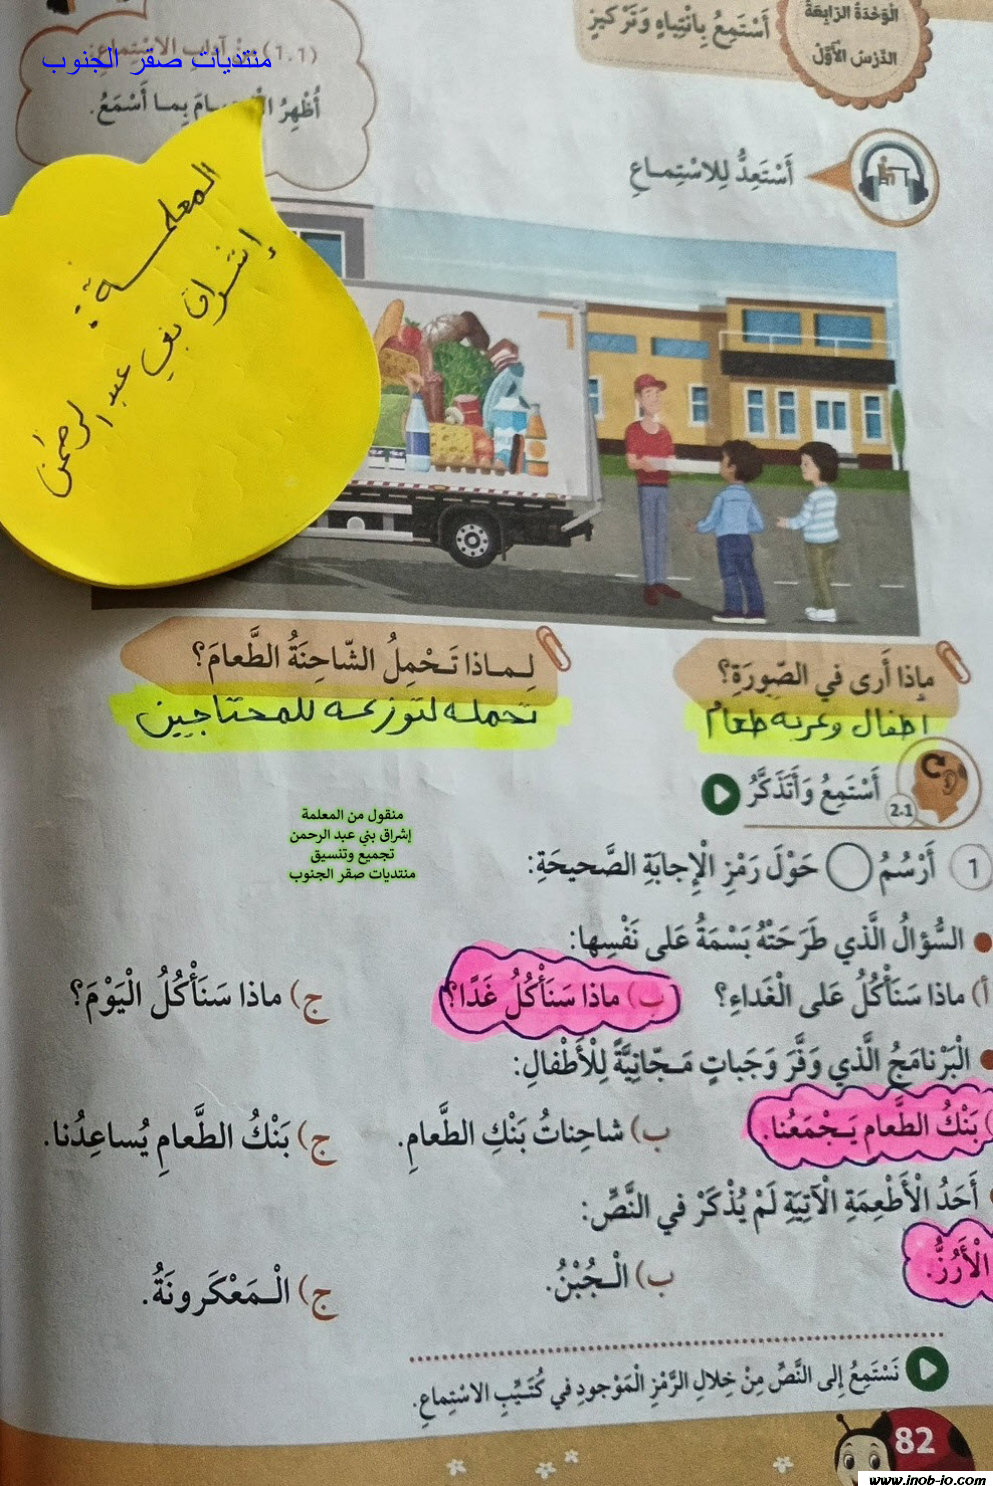 الْوَحْدَةُ الرّابِعَةُ
الدَّرْسُ الْأَوَّلُ
أَسْتَمِعُ بِانْتِباهٍ وَتَرْكيزٍ
(1.1) مِنْ آدابِ الِاسْتِماعِ:
منتديات صقر الجنوب
أُظْهِرُ بِما أَسْمَعُ.
أَسْتَعِدُّ لِلِاسْتِماعِ
المعلمة:
إشراق بني عبد الرحمن
ماذا أَرى في الصّورَةِ؟
أطفال وعربة طعام
لِماذا تَحْمِلُ الشّاحِنَةُ الطَّعامَ؟
تحمله لتوزعه للمحتاجين
أَسْتَمِعُ وَأَتَذَكَّرُ
2.1
منقول من المعلمة
إشراق بني عبد الرحمن
تجميع وتنسيق
منتديات صقر الجنوب
1 أَرْسُمُ حَوْلَ رَمْزِ الْإِجابَةِ الصَّحيحَةِ:
السُّؤالُ الَّذي طَرَحَتْهُ بَسْمَةُ عَلى نَفْسِها:
أ) ماذا سَنَأْكُلُ عَلى الْغَداءِ؟ ب) ماذا سَنَأْكُلُ غَدًا؟ ج) ماذا سَنَأْكُلُ الْيَوْمَ؟
الْبَرْنامَجُ الَّذي وَفَّرَ وَجَباتٍ مَجّانِيَّةً لِلْأَطْفالِ:
) بَنْكُ الطَّعامِ يَجْمَعُنا. ب) شاحِناتُ بَنْكِ الطَّعامِ. ج) بَنْكُ الطَّعامِ يُساعِدُنا.
أَحَدُ الْأَطْعِمَةِ الْآتِيَةِ لَمْ يُذْكَرْ في النَّصِّ:
الْأَرُزُّ. ب) الْجُبْنُ. ج) الْمَعْكَرونَةُ.
نَسْتَمِعُ إِلى النَّصِّ مِنْ خِلالِ الرَّمْزِ الْمَوْجودِ في كُتَيِّبِ الِاسْتِماعِ.
82
www.jnob-jo.com